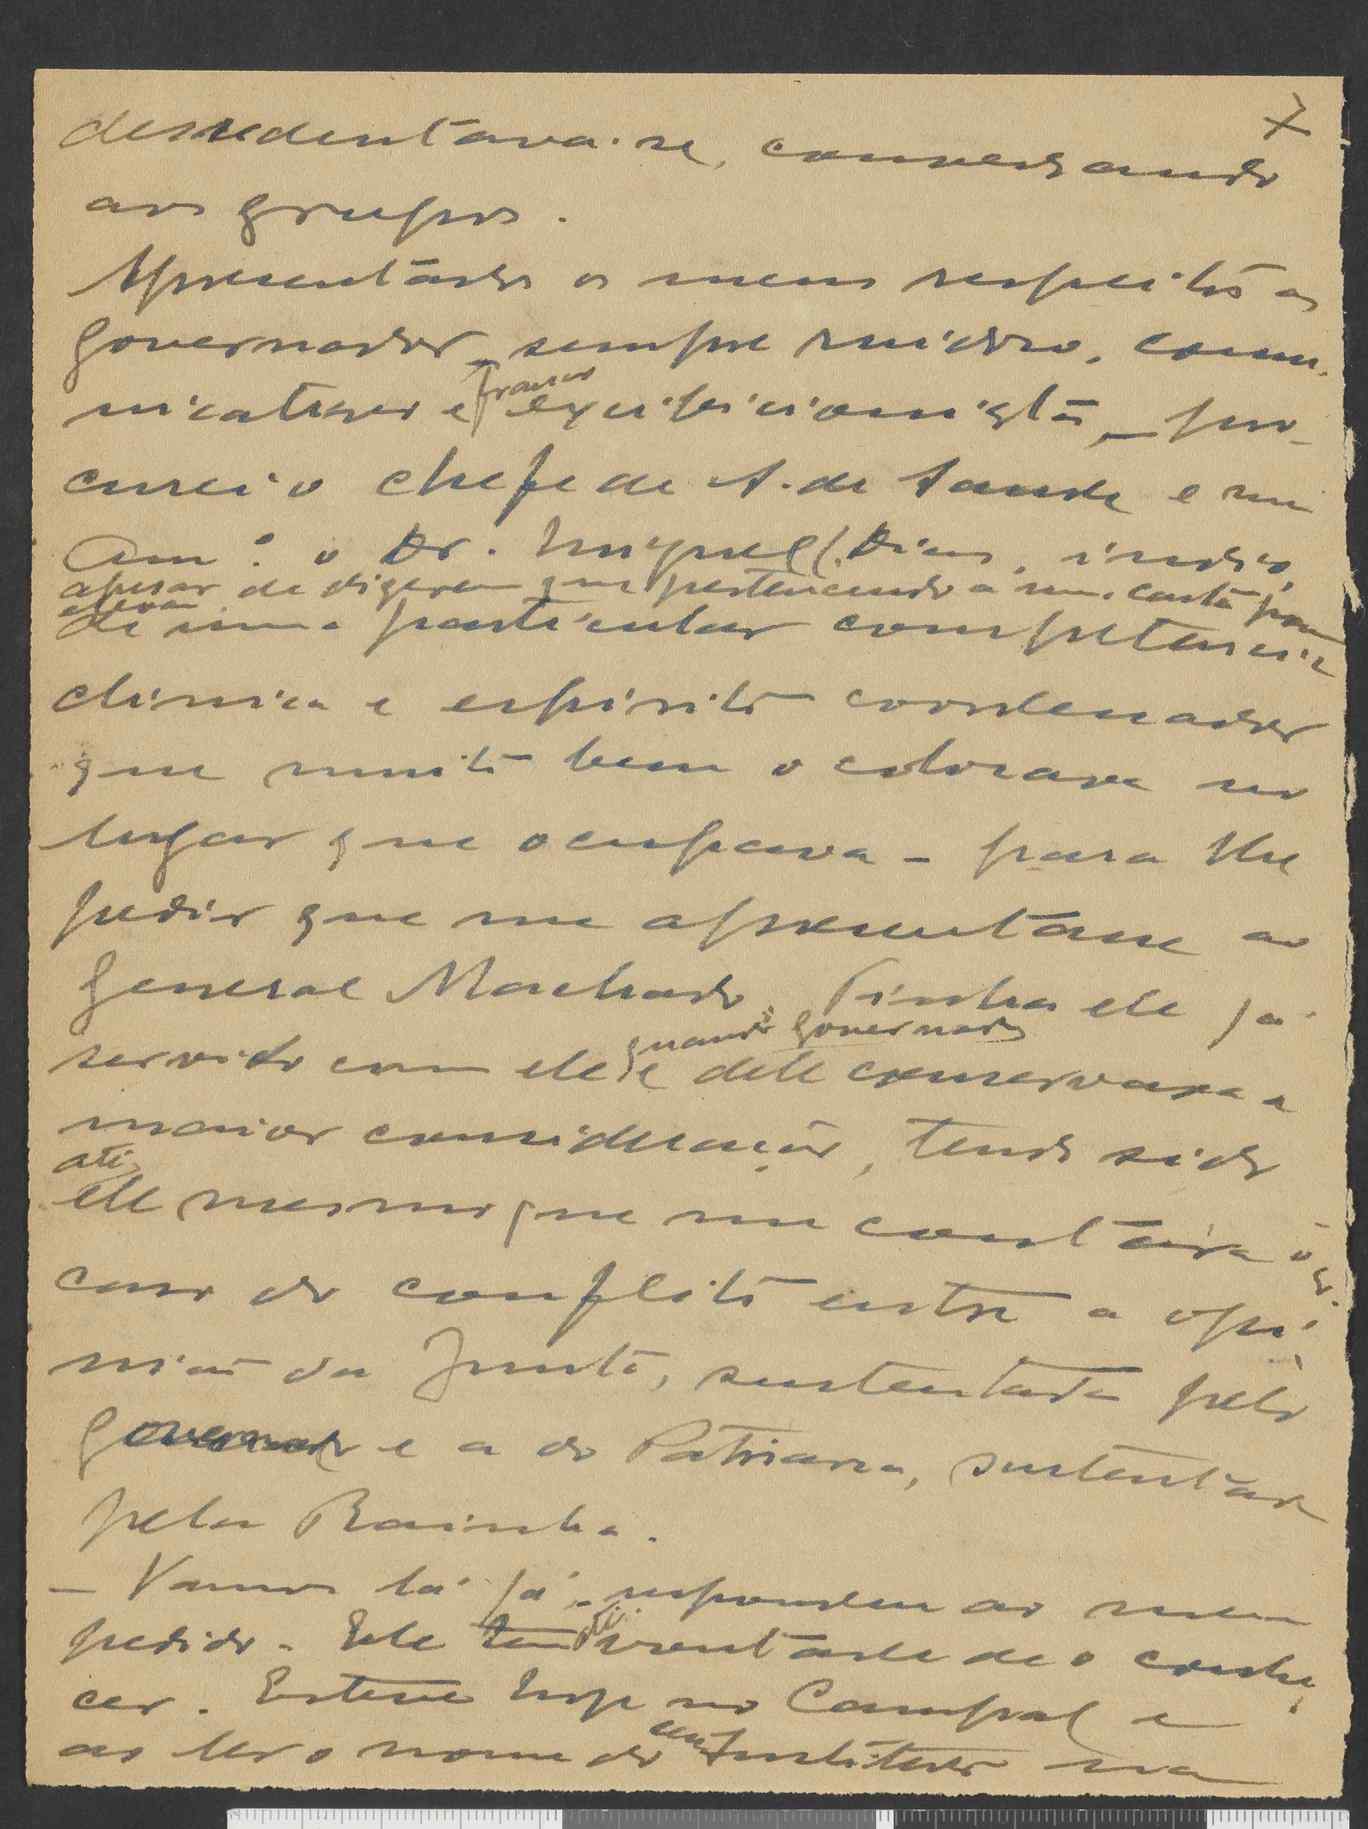 7
dessedentava-se, conversando
aos grupos.
Apresentados os meus respeitos ao
governador_ sempre ruidoso, comu-
nicativo e franco exibicionista,_ pro-
curei o chefe de S. de Saude e meu
Am.º: o Dr. Miguel C. Dias, indio,
apesar de dizerem que pertencendo a uma casta
de uma particular competencia
clinica e espirito coordenador
que muito bem o colocava no
lugar que ocupava - para lhe
pedir que me apresentasse ao
General Machado. Tinha ele já
servido com ele quando governador
e dele conservava a
maior consideração, tendo sido
até
ele mesmo que me contára o
caso do conflito entre a opi-
nião da Junta, sustentada pelo
governador e a do Patriarca, sustentada
pela Rainha.
- Vamos lá já - respondeu ao meu
pedido - Ele tem até vontade de o conhe-
cer. Esteve hoje no Campal e
ao ler o nome do seu Instituto na